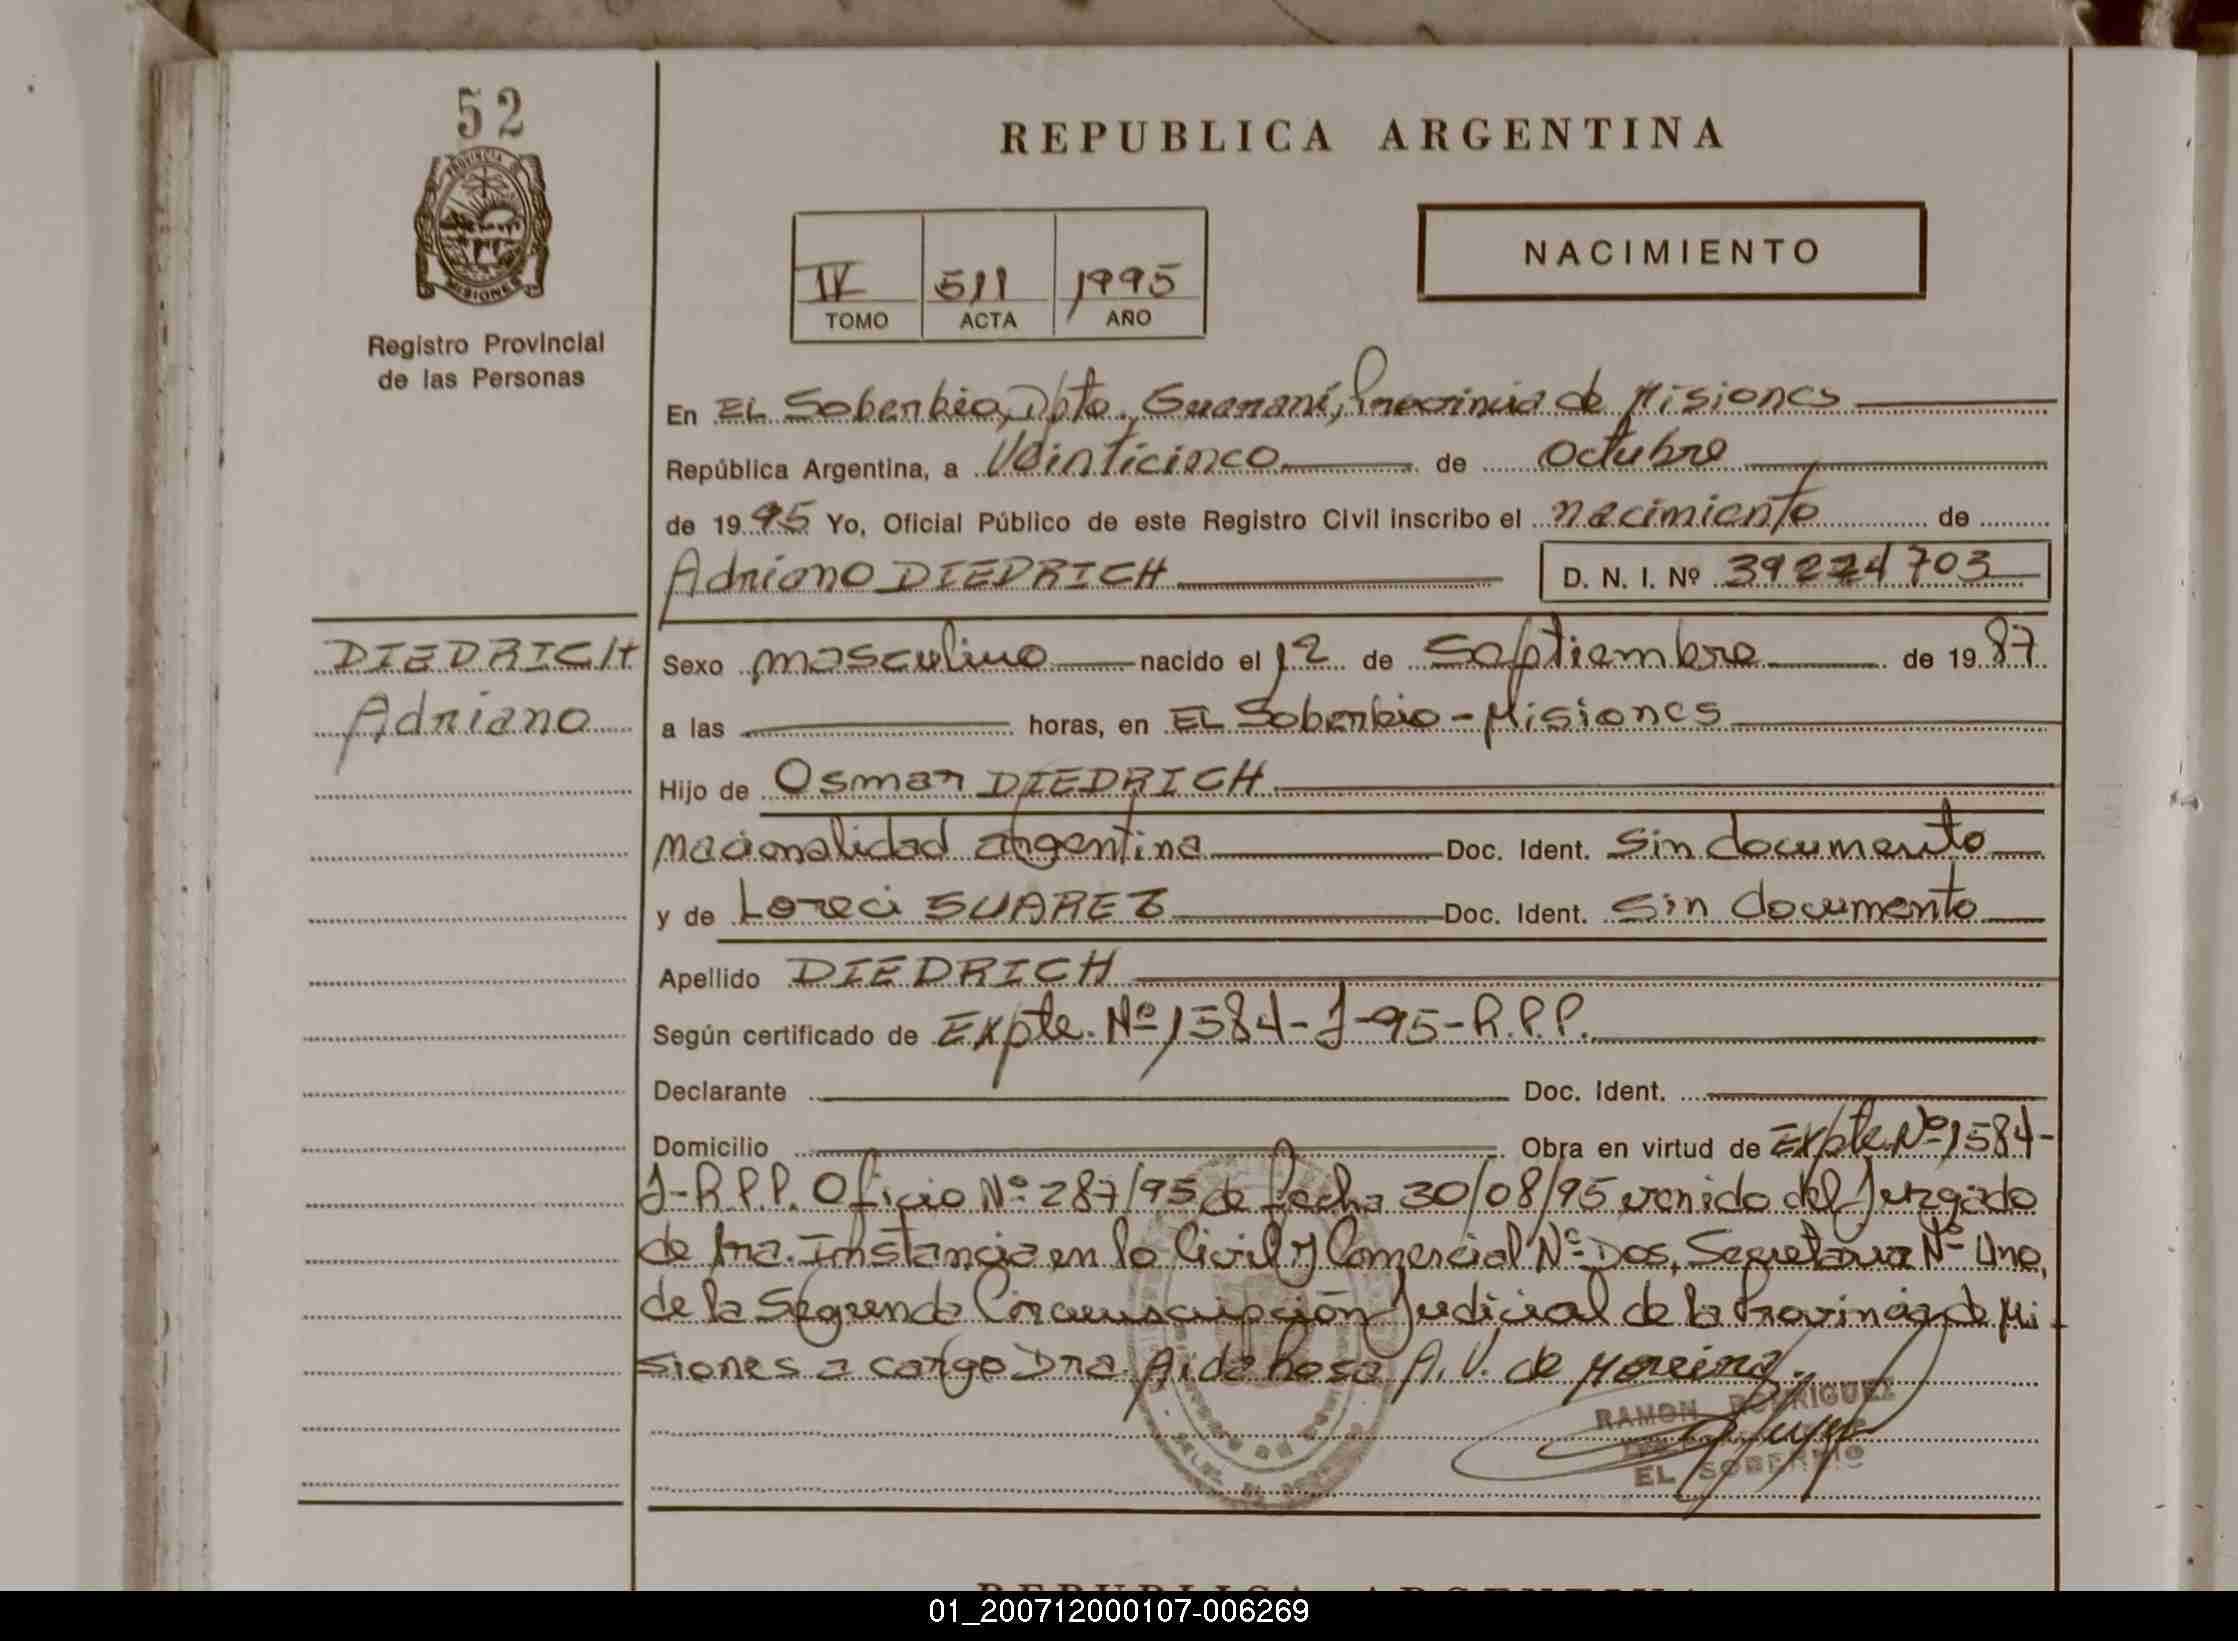 52
PROVINCIA D
MISIONES
Registro Provincial
de las Personas
REPUBLICA ARGENTINA
NACIMIENTO
IV 511 1995
TOMO ACTA AÑO
En EL Soberbio, Dpto. Guaraní, Provincia de Misiones
República Argentina, a Veinticinco de octubre
de 1995 Yo, Oficial Público de este Registro Civil inscribo el nacimiento de
Adriano DIEDRICH D. N. I. Nº 39224703
DIEDRICH
Adriano
Sexo masculino nacido el 12 de Septiembre de 1987
a las horas, en EL Soberbio - Misiones
Hijo de Osmar DIEDRICH
nacionalidad argentina Doc. Ident. Sin documento
y de Loreci SUAREZ Doc. Ident. Sin documento
Apellido DIEDRICH
Según certificado de Expte. Nº 1584-J-95-R.P.P.
Declarante Doc. Ident.
Domicilio Obra en virtud de Expte Nº 1584-
J-R.P.P. Oficio Nº 287/95 de fecha 30/08/95 venido del Juzgado
de 1ra. Instancia en lo Civil y Comercial Nº Dos, Secretaria Nº Uno,
de la Segunda Circunscripción Judicial de la Provincia de Mi-
siones a cargo Dra. Aida Rosa A. V. de Moreira.
RAMON RODRIGUEZ
EL SOBERBIO
REPUBLICA ARGENTINA
01_200712000107-006269